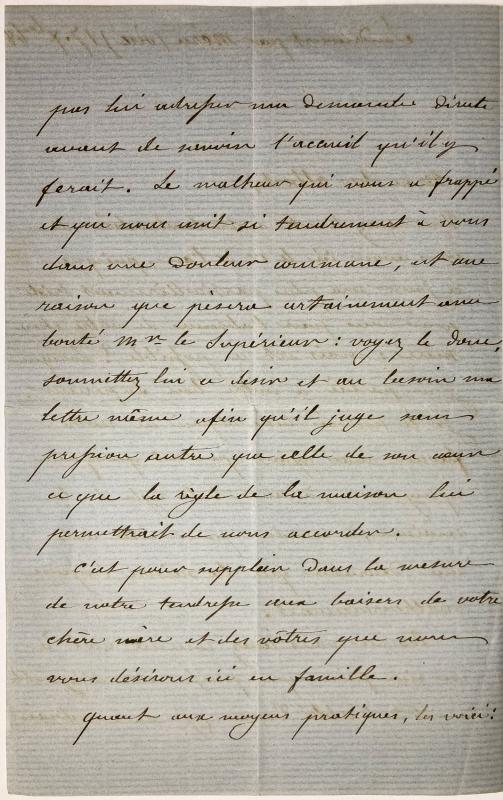 pas lui adresser ma demande directe
avant de savoir l'accueil qu'il y
ferait. Le malheur qui vous a frappé
et qui nous unit si tendrement à vous
dans une douleur commune, est une
raison que pèsera certainement une
bonté Mr le Supérieur : voyez le donc,
soumettez lui ce desir et au besoin ma
lettre même afin qu'il juge sans
pression autre que celle de son cœur
ce que la règle de la maison lui
permettrait de nous accorder.
C'est pour suppléer dans la mesure
de notre tendresse aux baisers de votre
chère mère et des vôtres que nous
vous désirons ici en famille.
Quant aux moyens pratiques, les voici :